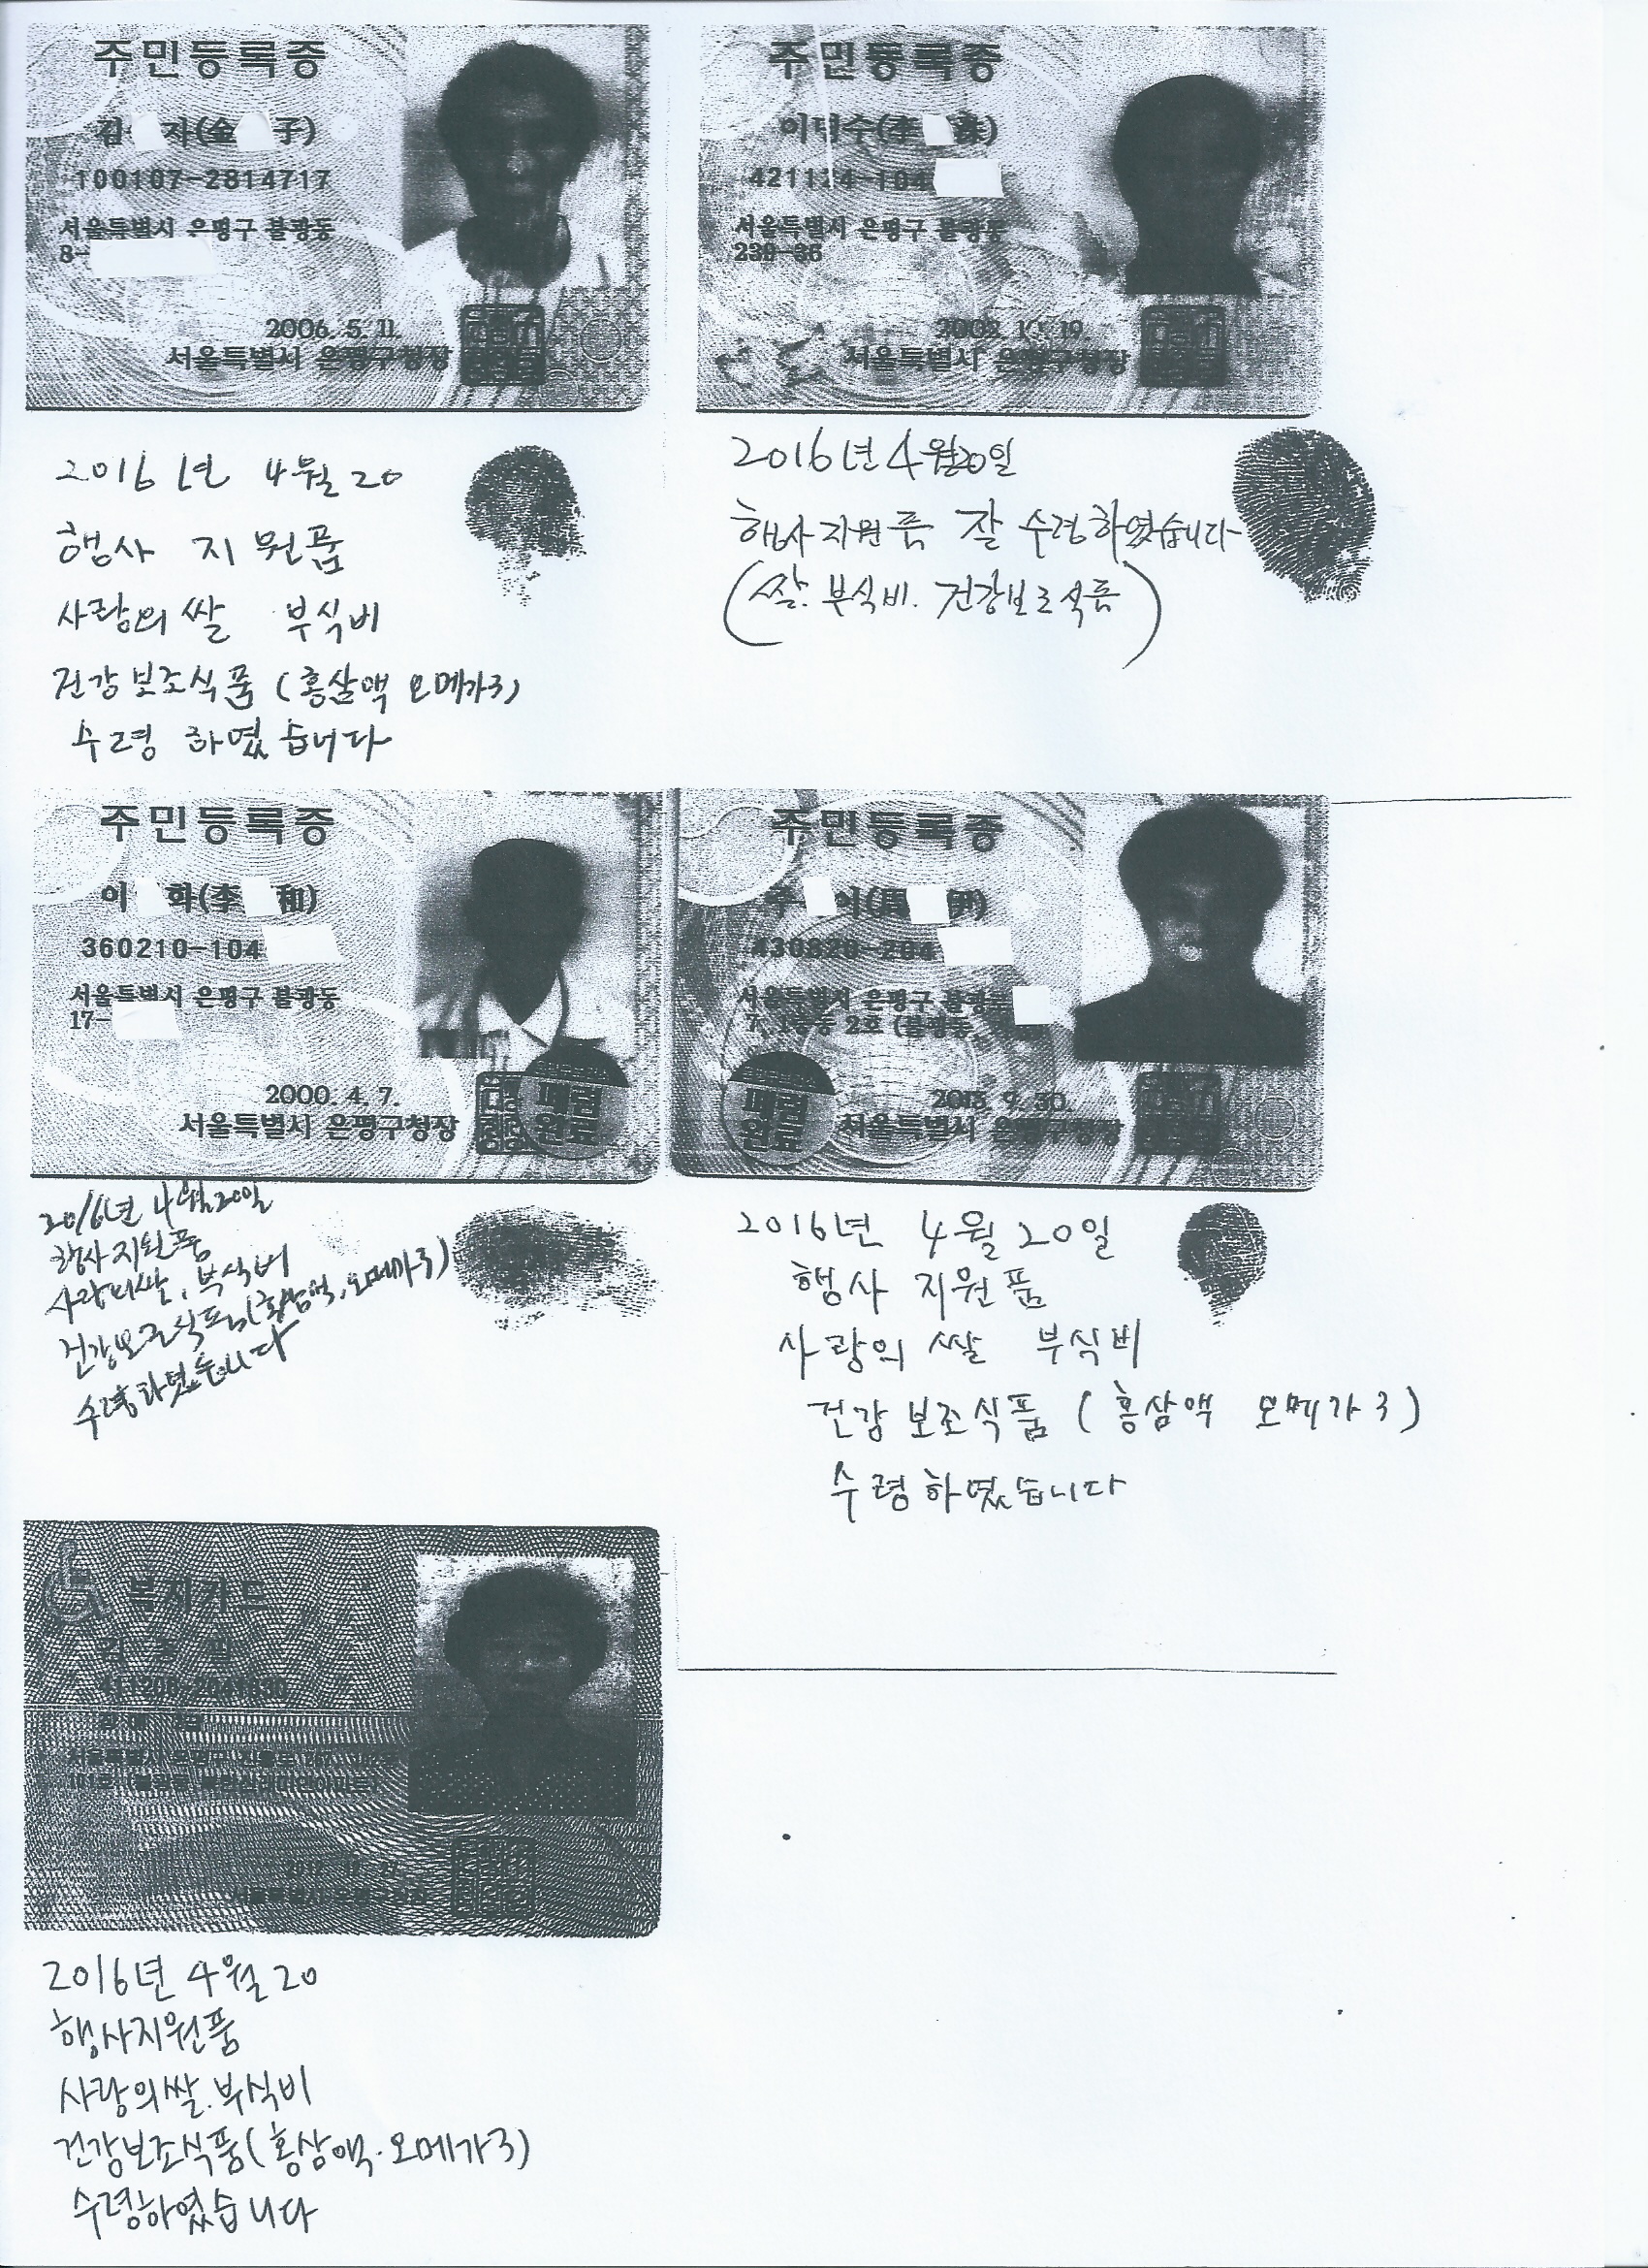 주민등록증
김 자(金 子)
100107-2814717
서울특별시 은평구 불광동
8-
2006. 5. 11.
서울특별시 은평구청장
주민등록증
이 수(李
421124-104
서울특별시 은평구 불광동
10. 19.
서울특별시 은평구청장
2016년 4월 20
행사 지원품
사랑의쌀 부식비
건강보조식품 (홍살액 오메가3)
수령 하였습니다
2016년 4월20일
행사지원품 잘 수령하였습니다
(쌀. 부식비. 건강보조식품)
주민등록증
이 화(李 和)
360210-104
서울특별시 은평구 불광동
17-
2000. 4. 7.
서울특별시 은평구청장
완료
주민등록증
주 이(周 伊)
430820-204
서울특별시 은평구
2호 (불광동
9. 30.
서울특별시 은평구청장
완료
2016년 4월20일
행사지원품
사랑의쌀, 부식비
건강보조식품(홍삼액, 오메가3)
수령하였습니다
2016년 4월 20일
행사 지원품
사랑의 쌀 부식비
건강 보조식품 (홍삼액 오메가3)
수령하였습니다
복지카드
서울특별시 은평구
2016년 4월 20
행사지원품
사랑의쌀.부식비
건강보조식품(홍삼액.오메가3)
수령하였습니다